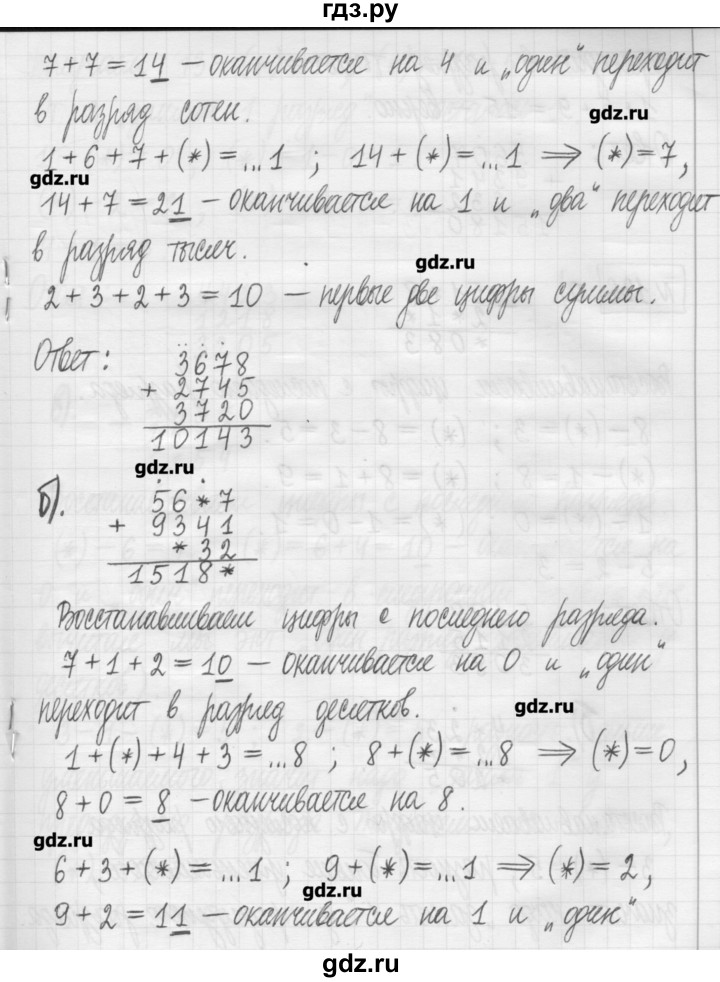 гдз.ру
7+7=14 – оканчивается на 4 и „один" переходит
в разряд сотен.
gdz.ru
1+6+7+(*)=...1 ; 14+(*)=...1 ⇒ (*)=7,
gdz.ru
14+7=21 – оканчивается на 1 и „два" переходит
в разряд тысяч.
gdz.ru
2+3+2+3=10 – первые две цифры суммы.
Ответ:
3678
+ 2745
3720
10143
gdz.ru
б).
56*7
+ 9341
*32
1518*
Восстанавливаем цифры с последнего разряда.
7+1+2=10 – оканчивается на 0 и „один"
переходит в разряд десятков.
gdz.ru
1+(*)+4+3=...8 ; 8+(*)=...8 ⇒ (*)=0,
8+0=8 – оканчивается на 8.
gdz.ru
6+3+(*)=...1 ; 9+(*)=...1 ⇒ (*)=2,
gdz.ru
9+2=11 – оканчивается на 1 и „один"
gdz.ru